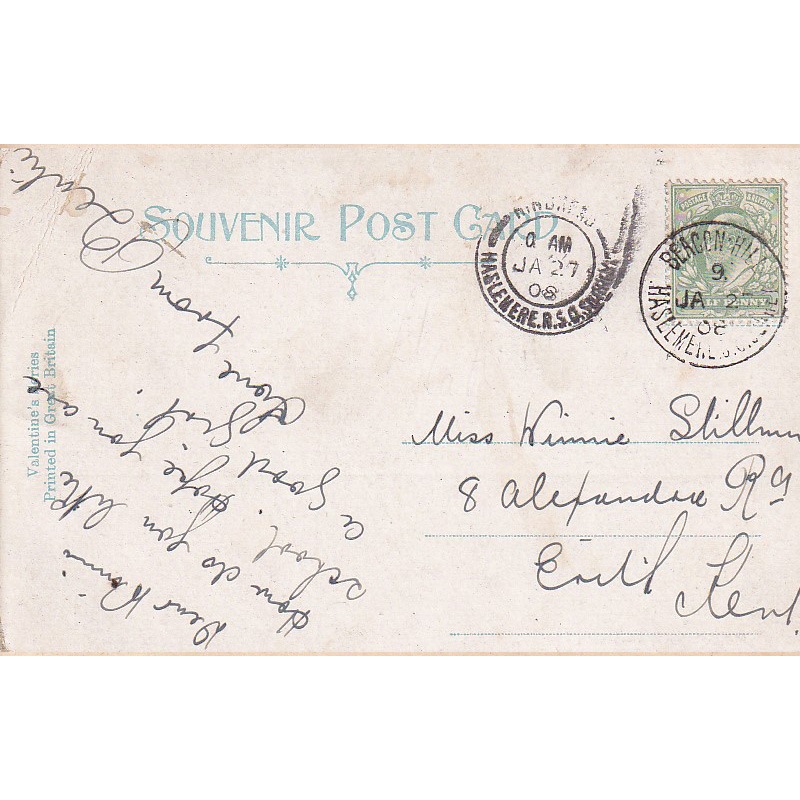 SOUVENIR POST CARD
Valentine's Series
Printed in Great Britain
HINDHEAD
AM
JA 27
08
HASLEMERE.R.S.O.SURREY
BEACON-HILL
9.
JA 2
08
HASLEMERE
POSTAGE
HALF PENNY
Miss Winnie
8 Alexandra Rd
Erith
Kent
Dear Winnie
How do you like
school. Hope you are
a good girl.
love from